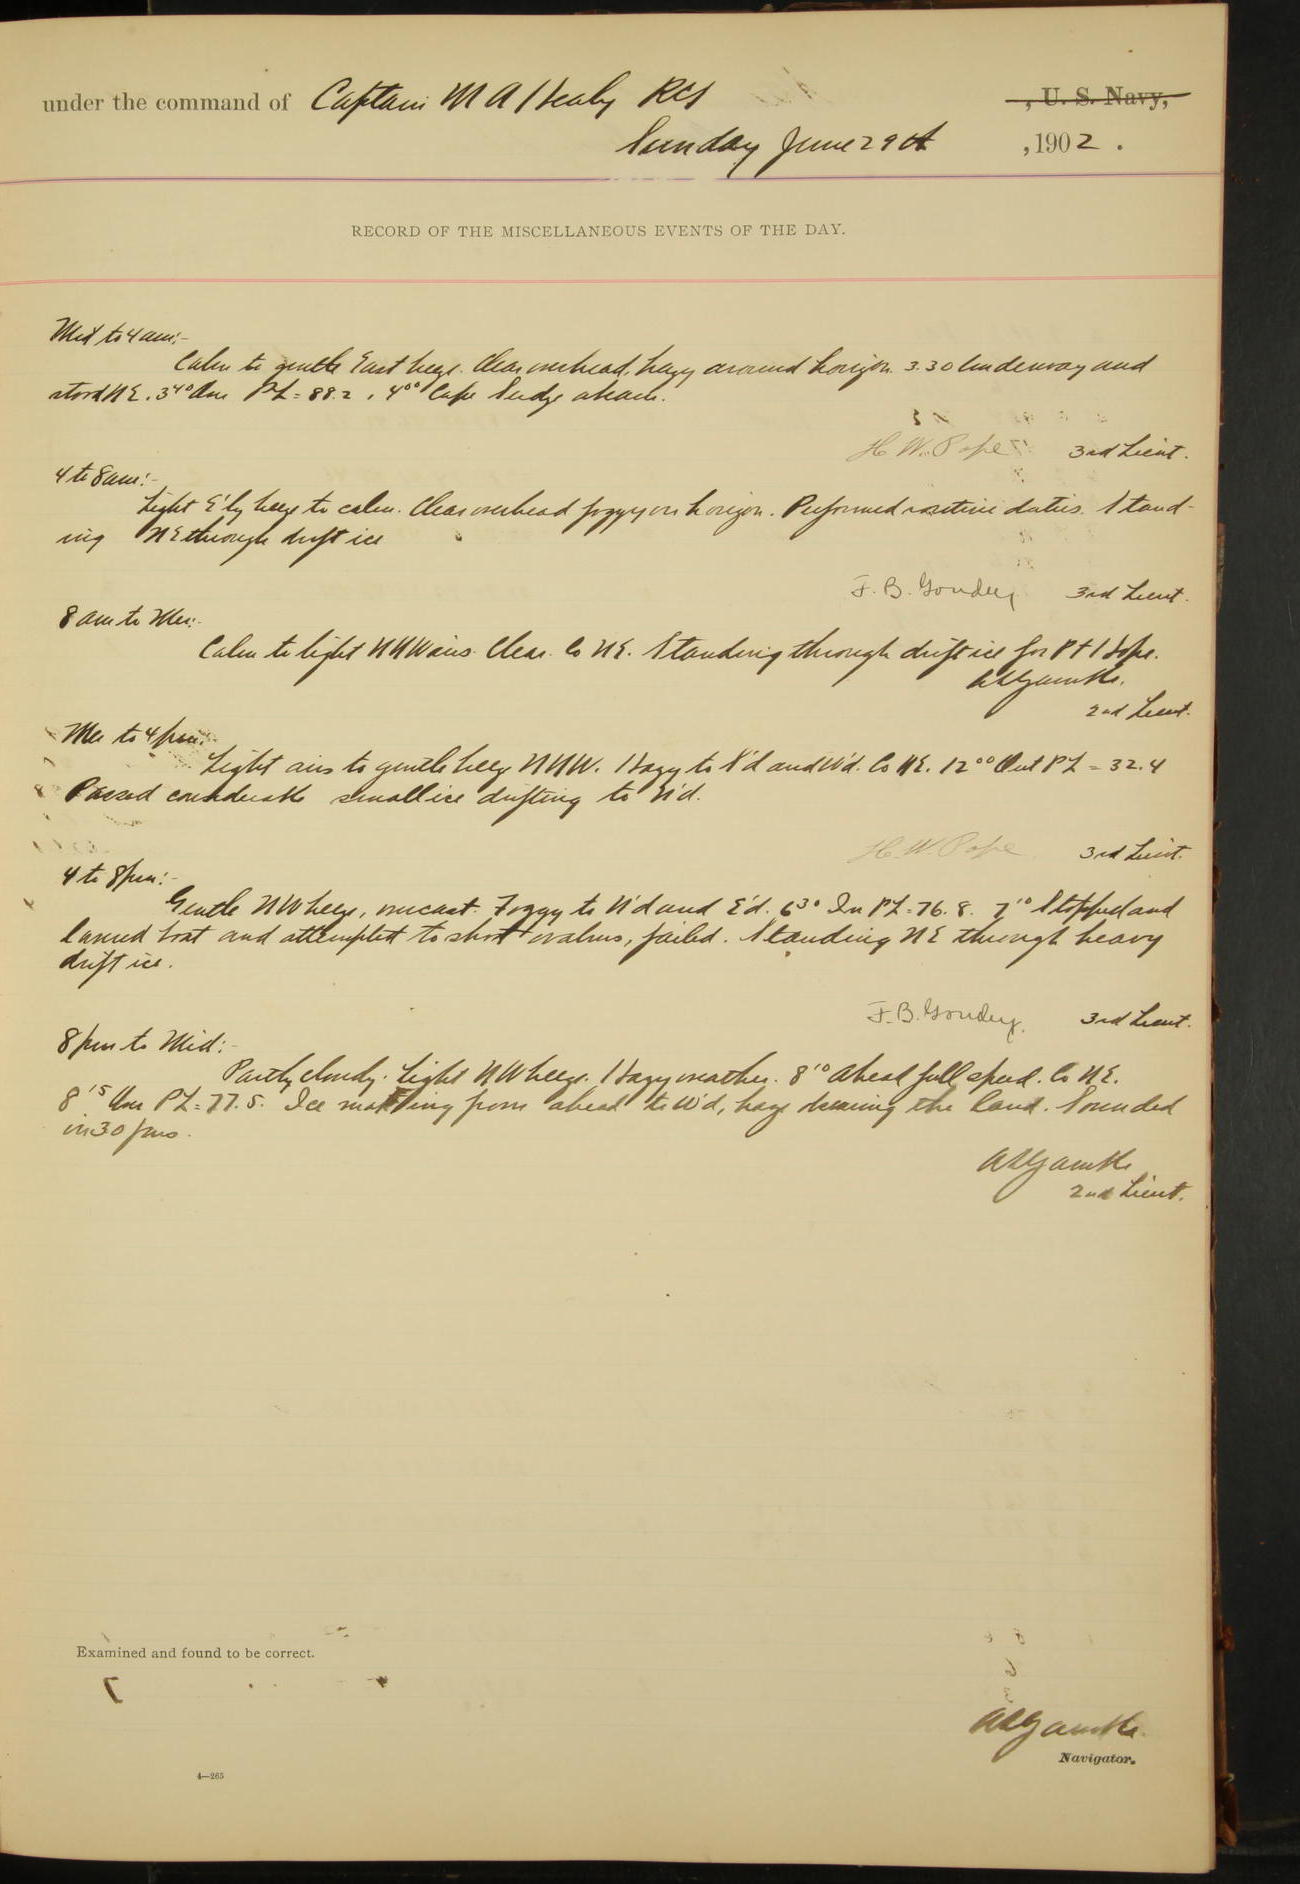 under the command of Captain M A Healy RCS , U. S. Navy,
Sunday June 29th , 1902 .
RECORD OF THE MISCELLANEOUS EVENTS OF THE DAY.
Mid to 4 am:-
Calm to gentle East breeze. Clear overhead, hazy around horizon. 3.30 Underway and
stood NE. 3 40 Over PL = 88.2 . 4 00 Cape abeam.
H. W. Pope 3rd Lieut.
4 to 8 am:-
Light E'ly breeze to calm. Clear overhead foggy on horizon. Performed routine duties. Stand-
ing NE through drift ice
F. B. Goudey 3rd Lieut.
8 am to Mer:-
Calm to light NNW airs. Clear. Co NE. Standing through drift ice for Pt Hope.
A L Gamble.
2nd Lieut.
Mer to 4 pm:-
Light airs to gentle breeze NNW. Hazy to N'd and W'd. Co NE. 12 00 PL = 32.4
Passed considerable small ice drifting to N'd.
H. W. Pope 3rd Lieut.
4 to 8 pm:-
Gentle NW breeze, overcast. Foggy to N'd and E'd. 6 30 In PL = 76.8. 7 10 Stopped and
lowered boat and attempted to shoot walrus, failed. Standing NE through heavy
drift ice.
F. B. Goudey. 3rd Lieut.
8 pm to Mid:-
Partly cloudy. Light NW breeze. Hazy weather. 8 10 Ahead full speed. Co NE.
8 15 Over PL = 77.5. Ice making from ahead to W'd, haze the land. Sounded
in 30 fms.
A L Gamble
2nd Lieut.
Examined and found to be correct.
A L Gamble
Navigator.
4—265